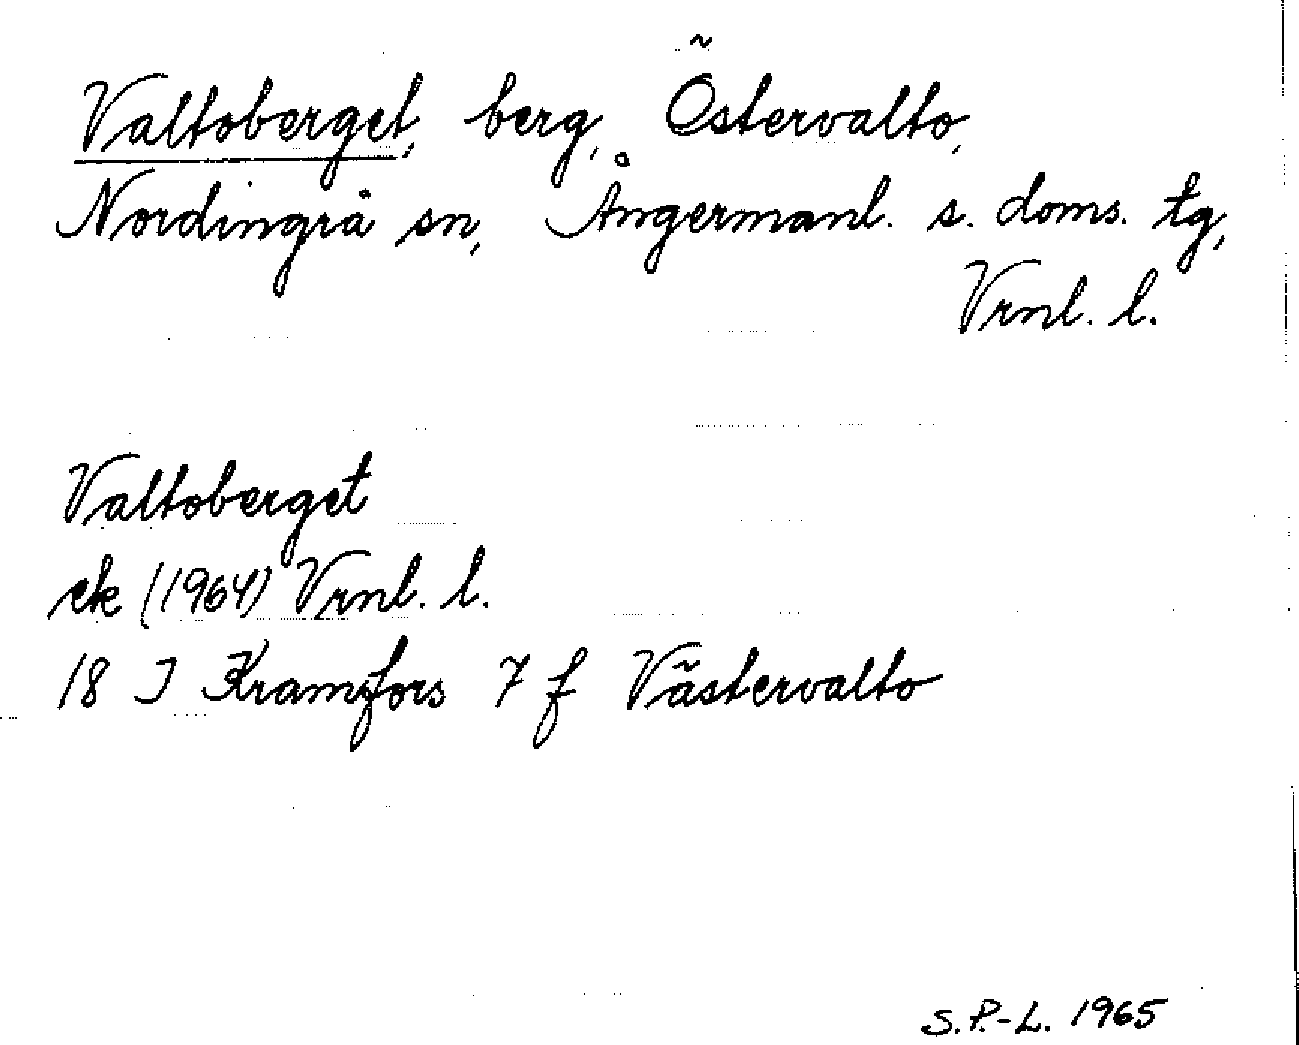 Valtoberget, berg, Östervalto,
Nordingrå sn, Ångermanl. s. doms. tg,
Vrnl. l.
Valtoberget
ek (1964) Vrnl. l.
18 I Kramfors 7 f Västervalto
S. P.-L. 1965